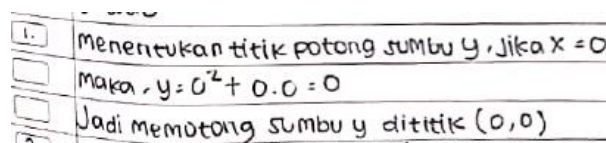 1. Menentukan titik potong sumbu y, Jika x = 0
Maka, y = 0² + 0.0 = 0
Jadi memotong sumbu y dititik (0,0)